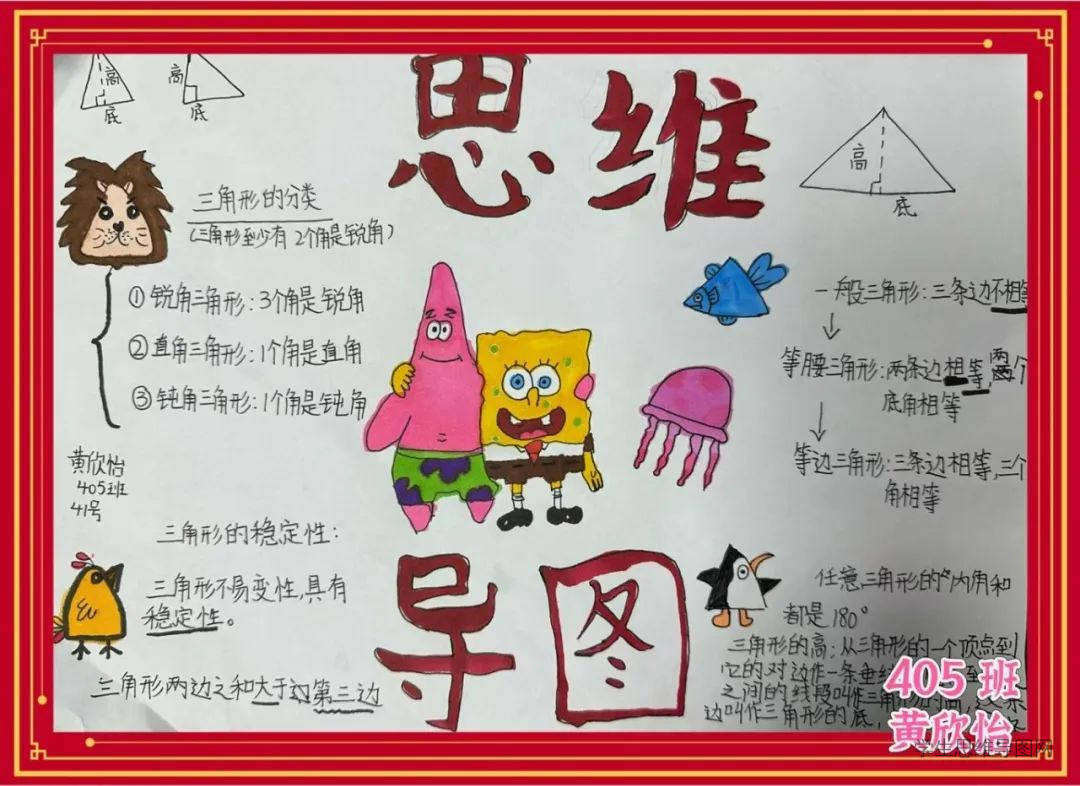 高
底
高
底
思维
高
底
三角形的分类
(三角形至少有2个角是锐角)
①锐角三角形:3个角是锐角
②直角三角形:1个角是直角
③钝角三角形:1个角是钝角
一般三角形:三条边不相等
等腰三角形:两条边相等,两个
底角相等
等边三角形:三条边相等,三个
角相等
黄欣怡
405班
41号
三角形的稳定性:
三角形不易变性,具有
稳定性。
三角形两边之和大于第三边
导图
任意三角形的内角和
都是180°
三角形的高:从三角形的一个顶点到
它的对边作一条垂
之间的线段叫作三角
边叫作三角形的底,
405班
黄欣怡
学生思维导图网